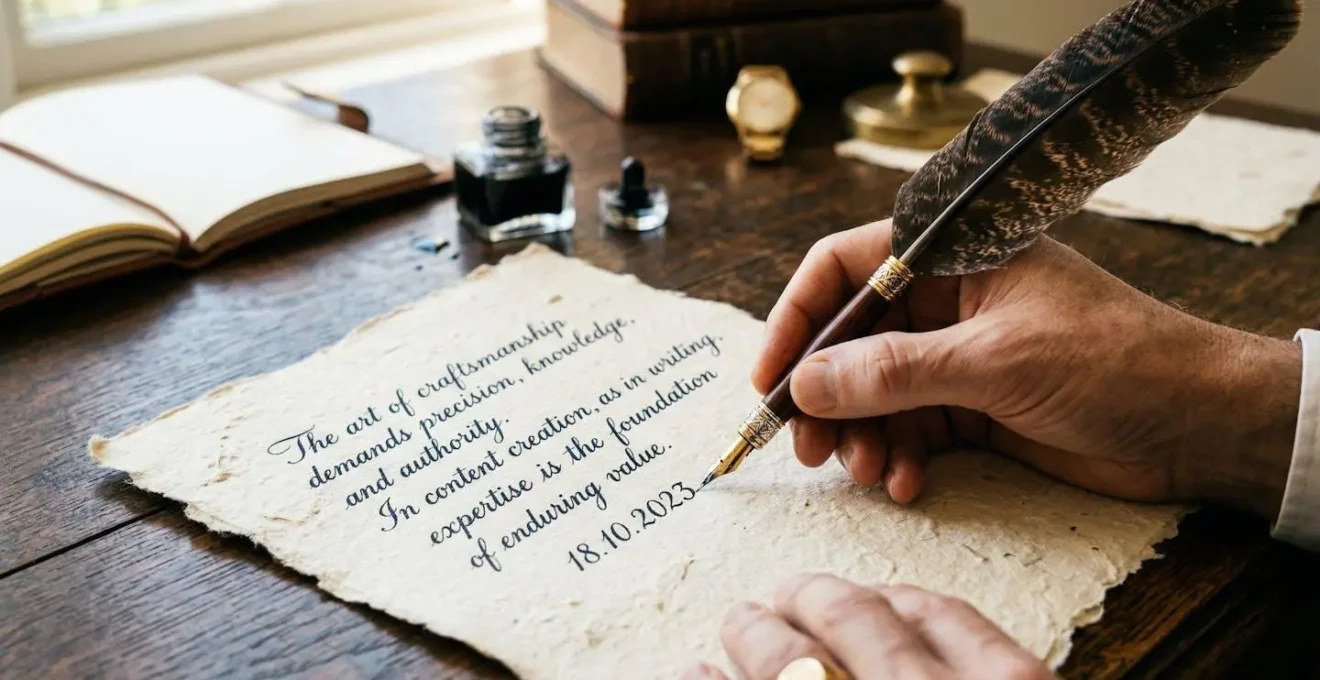 The art of craftsmanship
demands precision, knowledge,
and authority.
In content creation, as in writing,
expertise is the foundation
of enduring value.
18.10.2023